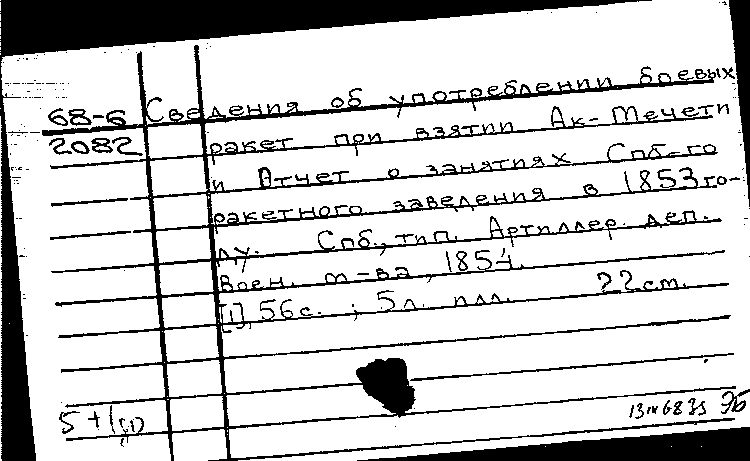 68-6 Сведения об употреблении боевых
2082 ракет при взятии Ак-Мечети
и Отчет о занятиях Спб-го
ракетного заведения в 1853 го-
ду. Спб., тип. Артиллер. деп.
Воен. м-ва, 1854.
[1], 56 с. ; 5 л. илл. 22 см.